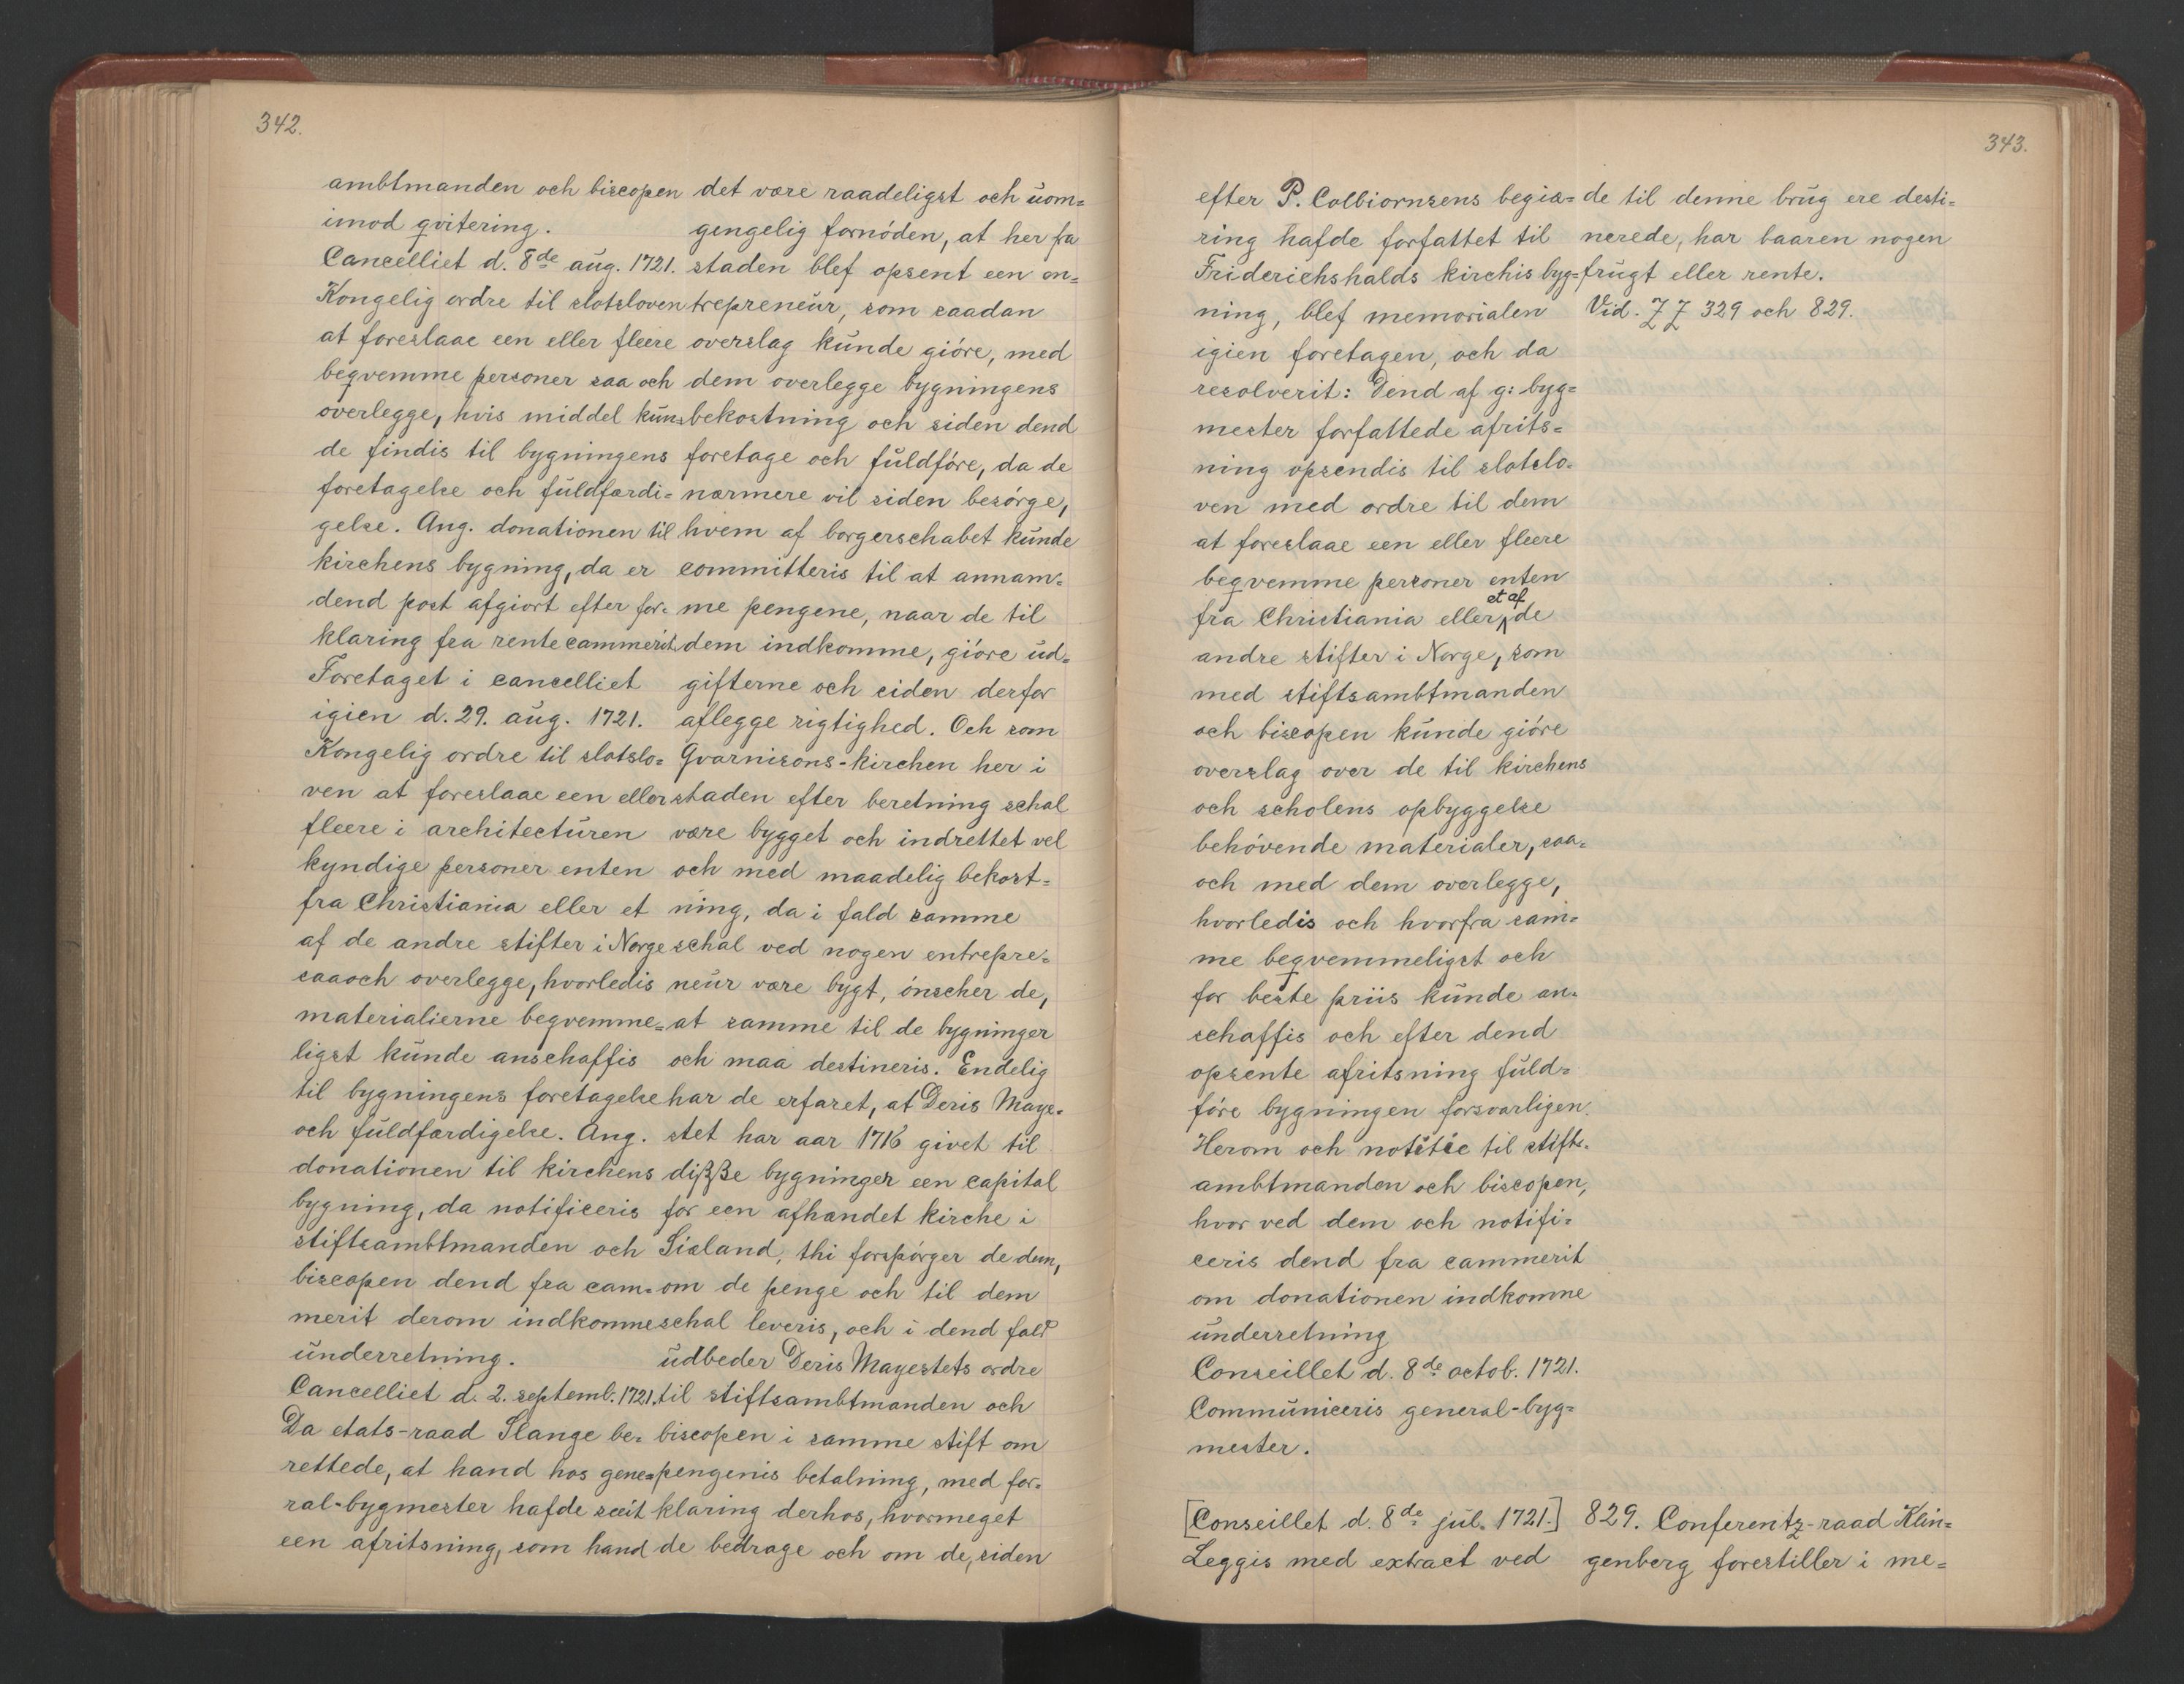 342.
ambtmanden och biscopen
imod qvitering.
Cancelliet d. 8de aug. 1721.
Kongelig ordre til slotsloven
at foreslaae een eller fleere
beqvemme personer saa och
overlegge, hvis middel kun=
de findis til bygningens
foretagelse och fuldfærdi=
gelse. Ang. donationen til
kirchens bygning, da er
dend post afgiort efter for=
klaring fra rentecammerit.
Foretaget i cancelliet
igien d. 29. aug. 1721.
Kongelig ordre til slotslo=
ven at foreslaae een eller
fleere i architecturen
kyndige personer enten
fra Christiania eller et
af de andre stifter i Norge
saaoch overlegge, hvorledis
materialierne beqvemme=
ligst kunde anschaffis
til bygningens foretagelse
och fuldfærdigelse. Ang.
donationen til kirchens
bygning, da notificeris
stiftsambtmanden och
biscopen dend fra cam=
merit derom indkomne
underretning.
Cancelliet d. 2. septemb. 1721.
Da etats-raad Slange be=
rettede, at hand hos gene=
ral-bygmester hafde seeit
een afritsning, som hand
det være raadeligst och uom=
gengelig fornöden, at her fra
staden blef opsent een en=
trepreneur, som saadan
overslag kunde giöre, med
dem overlegge bygningens
bekostning och siden dend
foretage och fuldföre, da de
nærmere vil siden besörge,
hvem af borgerschabet kunde
committeris til at annam=
me pengene, naar de til
dem indkomme, giöre ud=
gifterne och siden derfor
aflegge rigtighed. Och som
Gvarnisons-kirchen her i
staden efter beretning schal
være bygget och indrettet vel
och med maadelig bekost=
ning, da i fald samme
schal ved nogen entrepre=
neur være bygt, önscher de,
at samme til de bygninger
och maa destineris. Endelig
har de erfaret, at Deris Maye=
stet har aar 1716 givet til
dißße bygninger een capital
for een afhandet kirche i
Siæland, thi forspörger de dem,
om de penge och til dem
schal leveris, och i dend fald
udbeder Deris Mayestets ordre
til stiftsambtmanden och
biscopen i samme stift om
pengenis betalning, med for=
klaring derhos, hvormeget
de bedrage och om de, siden
343.
efter P. Colbiornsens begiæ=
ring hafde forfattet til
Friderichshalds kirchis byg=
ning, blef memorialen
igien foretagen, och da
resolverit: Dend af g: byg=
mester forfattede afrits=
ning opsendis til slotslo=
ven med ordre til dem
at foreslaae een eller fleere
beqvemme personer enten
fra Christiania eller et af de
andre stifter i Norge, som
med stiftsambtmanden
och biscopen kunde giöre
overslag over de til kirchens
och scholens opbyggelse
behövende materialer, saa=
och med dem overlegge,
hvorledis och hvorfra sam=
me beqvemmeligst och
for beste priis kunde an=
schaffis och efter dend
opsente afritsning fuld=
före bygningen forsvarligen.
Herom och notitie til stifts=
ambtmanden och biscopen,
hvor ved dem och notifi=
ceris dend fra cammerit
om donationen indkomne
underretning
Conseillet d. 8de octob. 1721.
Communiceris general-byg=
mester.
de til denne brug ere desti=
nerede, har baaren nogen
frugt eller rente.
Vid. ZZ 329 och 829.
[Conseillet d. 8de jul. 1721.]
Leggis med extract ved
829. Conferentz-raad Klin=
genberg forestiller i me=